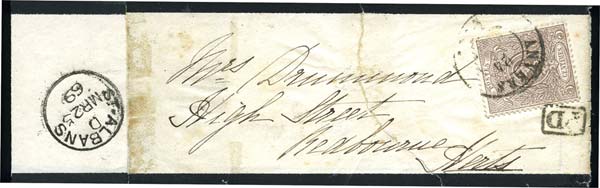 Mrs Drummond
High Street
Redbourne
Herts
ST. ALBANS
D
MR 25
69
PD